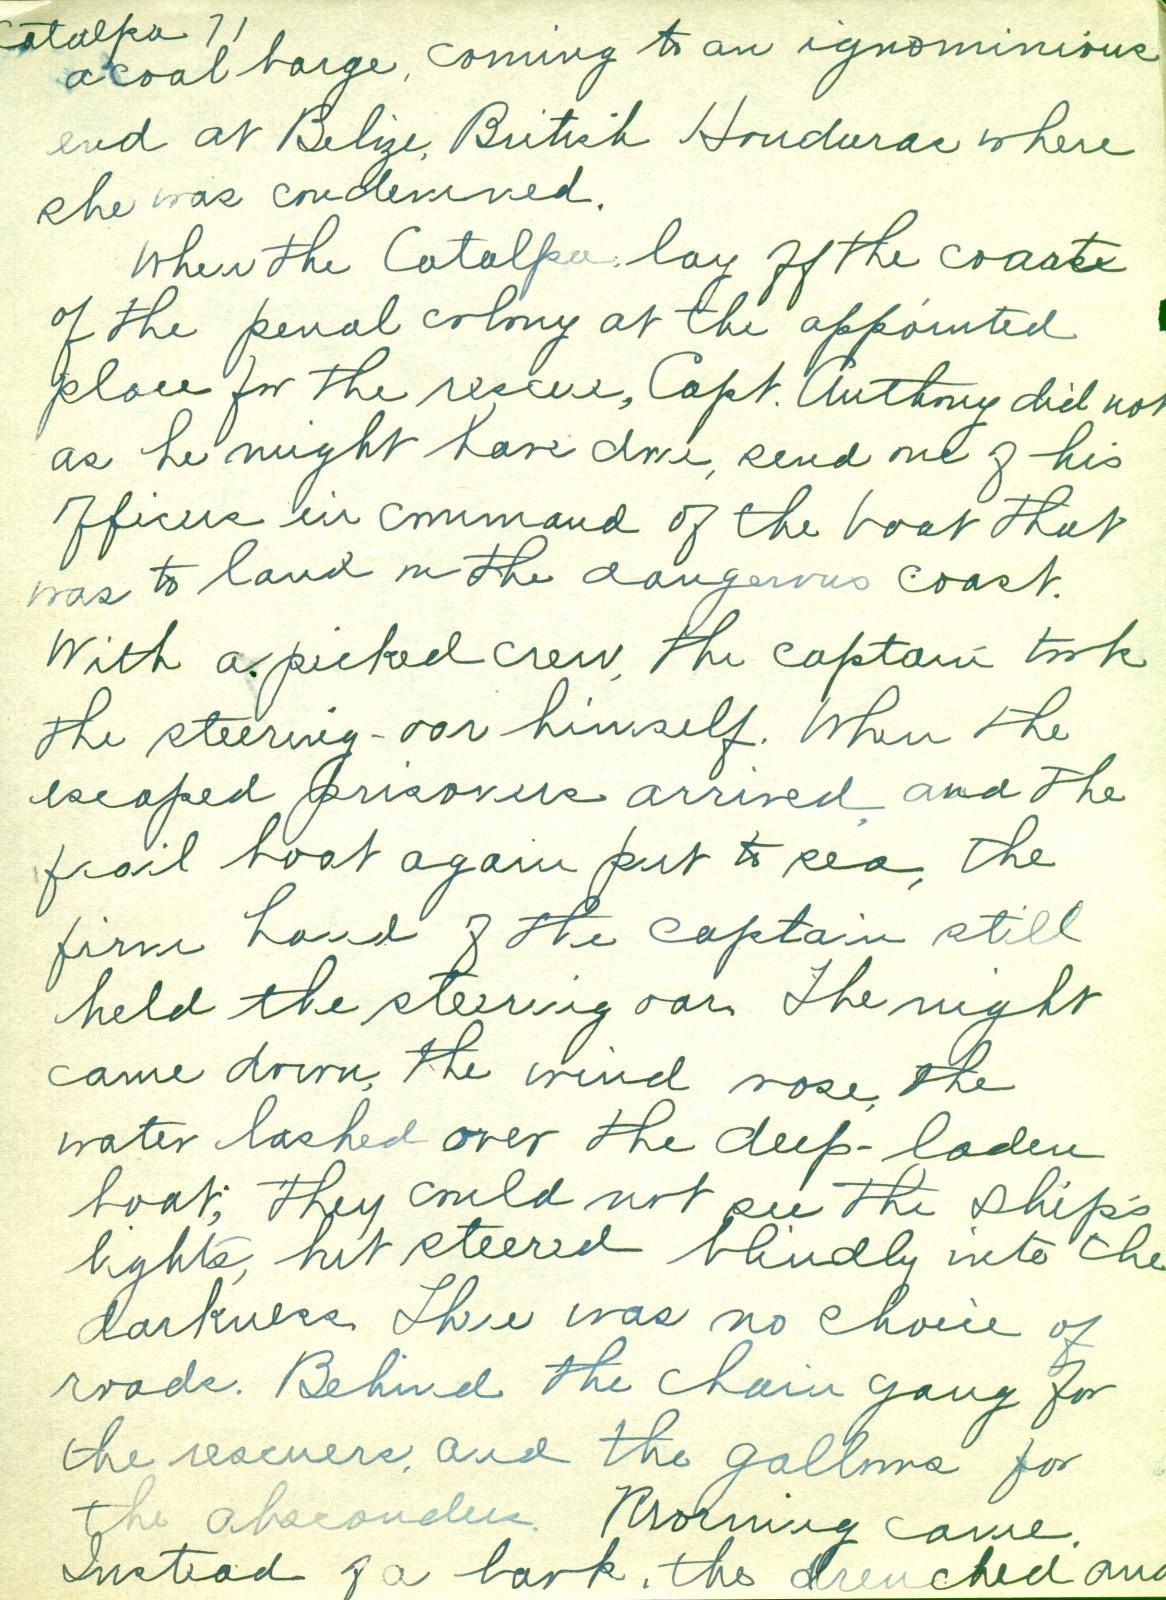 Catalpa 71
a coal barge, coming to an ignominious
end at Belize, British Honduras where
she was condemned.
When the Catalpa lay off the coaste
of the penal colony at the appointed
place for the rescue, Capt. Anthony did not
as he might have done, send one of his
officers in command of the boat that
was to land on the dangerous coast.
With a picked crew, the captain took
the steering-oar himself. When the
escaped prisoners arrived, and the
frail boat again put to sea, the
firm hand of the captain still
held the steering oar. The night
came down, the wind rose, the
water lashed over the deep-laden
boat; they could not see the ship's
lights, but steered blindly into the
darkness. There was no choice of
roads. Behind the chain gang for
the rescuers, and the gallows for
the absconders. Morning came.
Instead of a bark, the drenched and